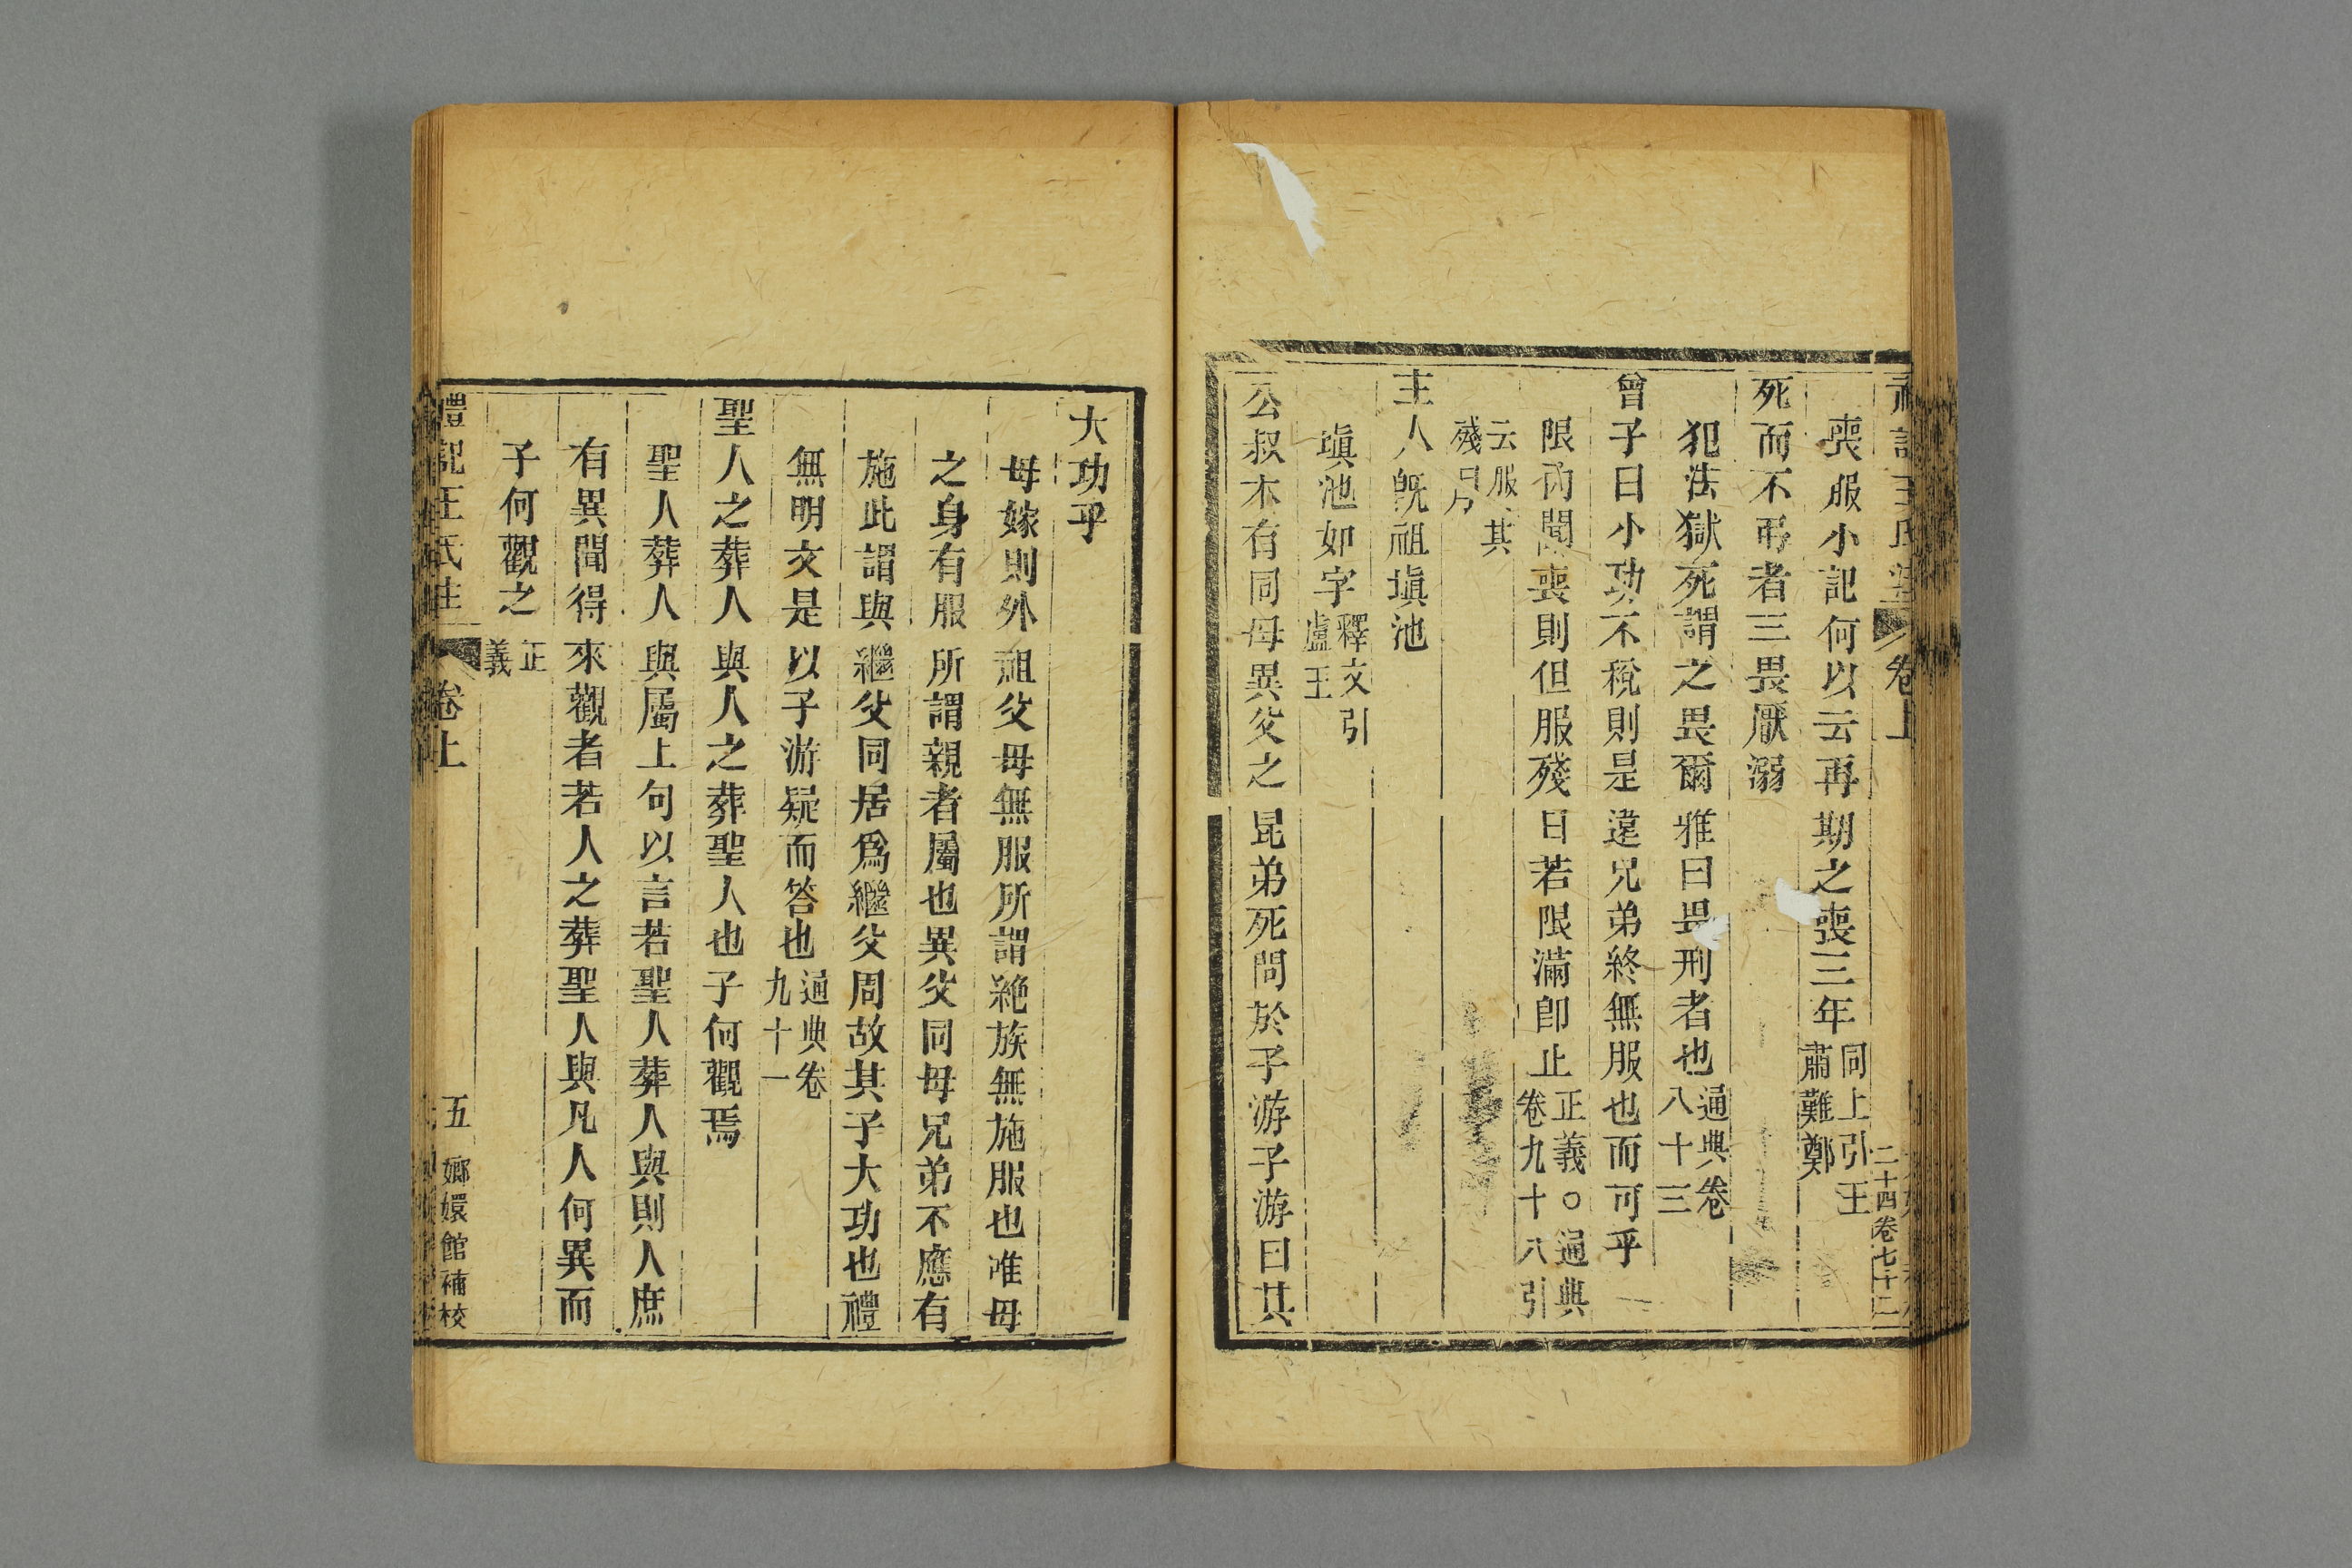 卷上
二十四卷七十二
喪服小記何以云再期之喪三年同上引王肅難鄭
死而不弔者三畏厭溺
犯法獄死謂之畏爾雅曰畏刑者也通典卷八十三
曾子曰小功不稅則是遠兄弟終無服也而可乎
限內聞喪則但服殘日若限滿卽止正義○通典卷九十八引
云服其殘月
主人旣祖塡池
塡池如字釋文引盧王
公叔木有同母異父之昆弟死問於子游子游曰其
大功乎
母嫁則外祖父母無服所謂絶族無施服也唯母
之身有服所謂親者屬也異父同母兄弟不應有
施此謂與繼父同居爲繼父周故其子大功也禮
無明文是以子游疑而答也通典卷九十一
聖人之葬人與人之葬聖人也子何觀焉
聖人葬人與屬上句以言若聖人葬人與則人庶
有異聞得來觀者若人之葬聖人與凡人何異而
子何觀之正義
禮記王氏注 卷上 五 嫏嬛館補校